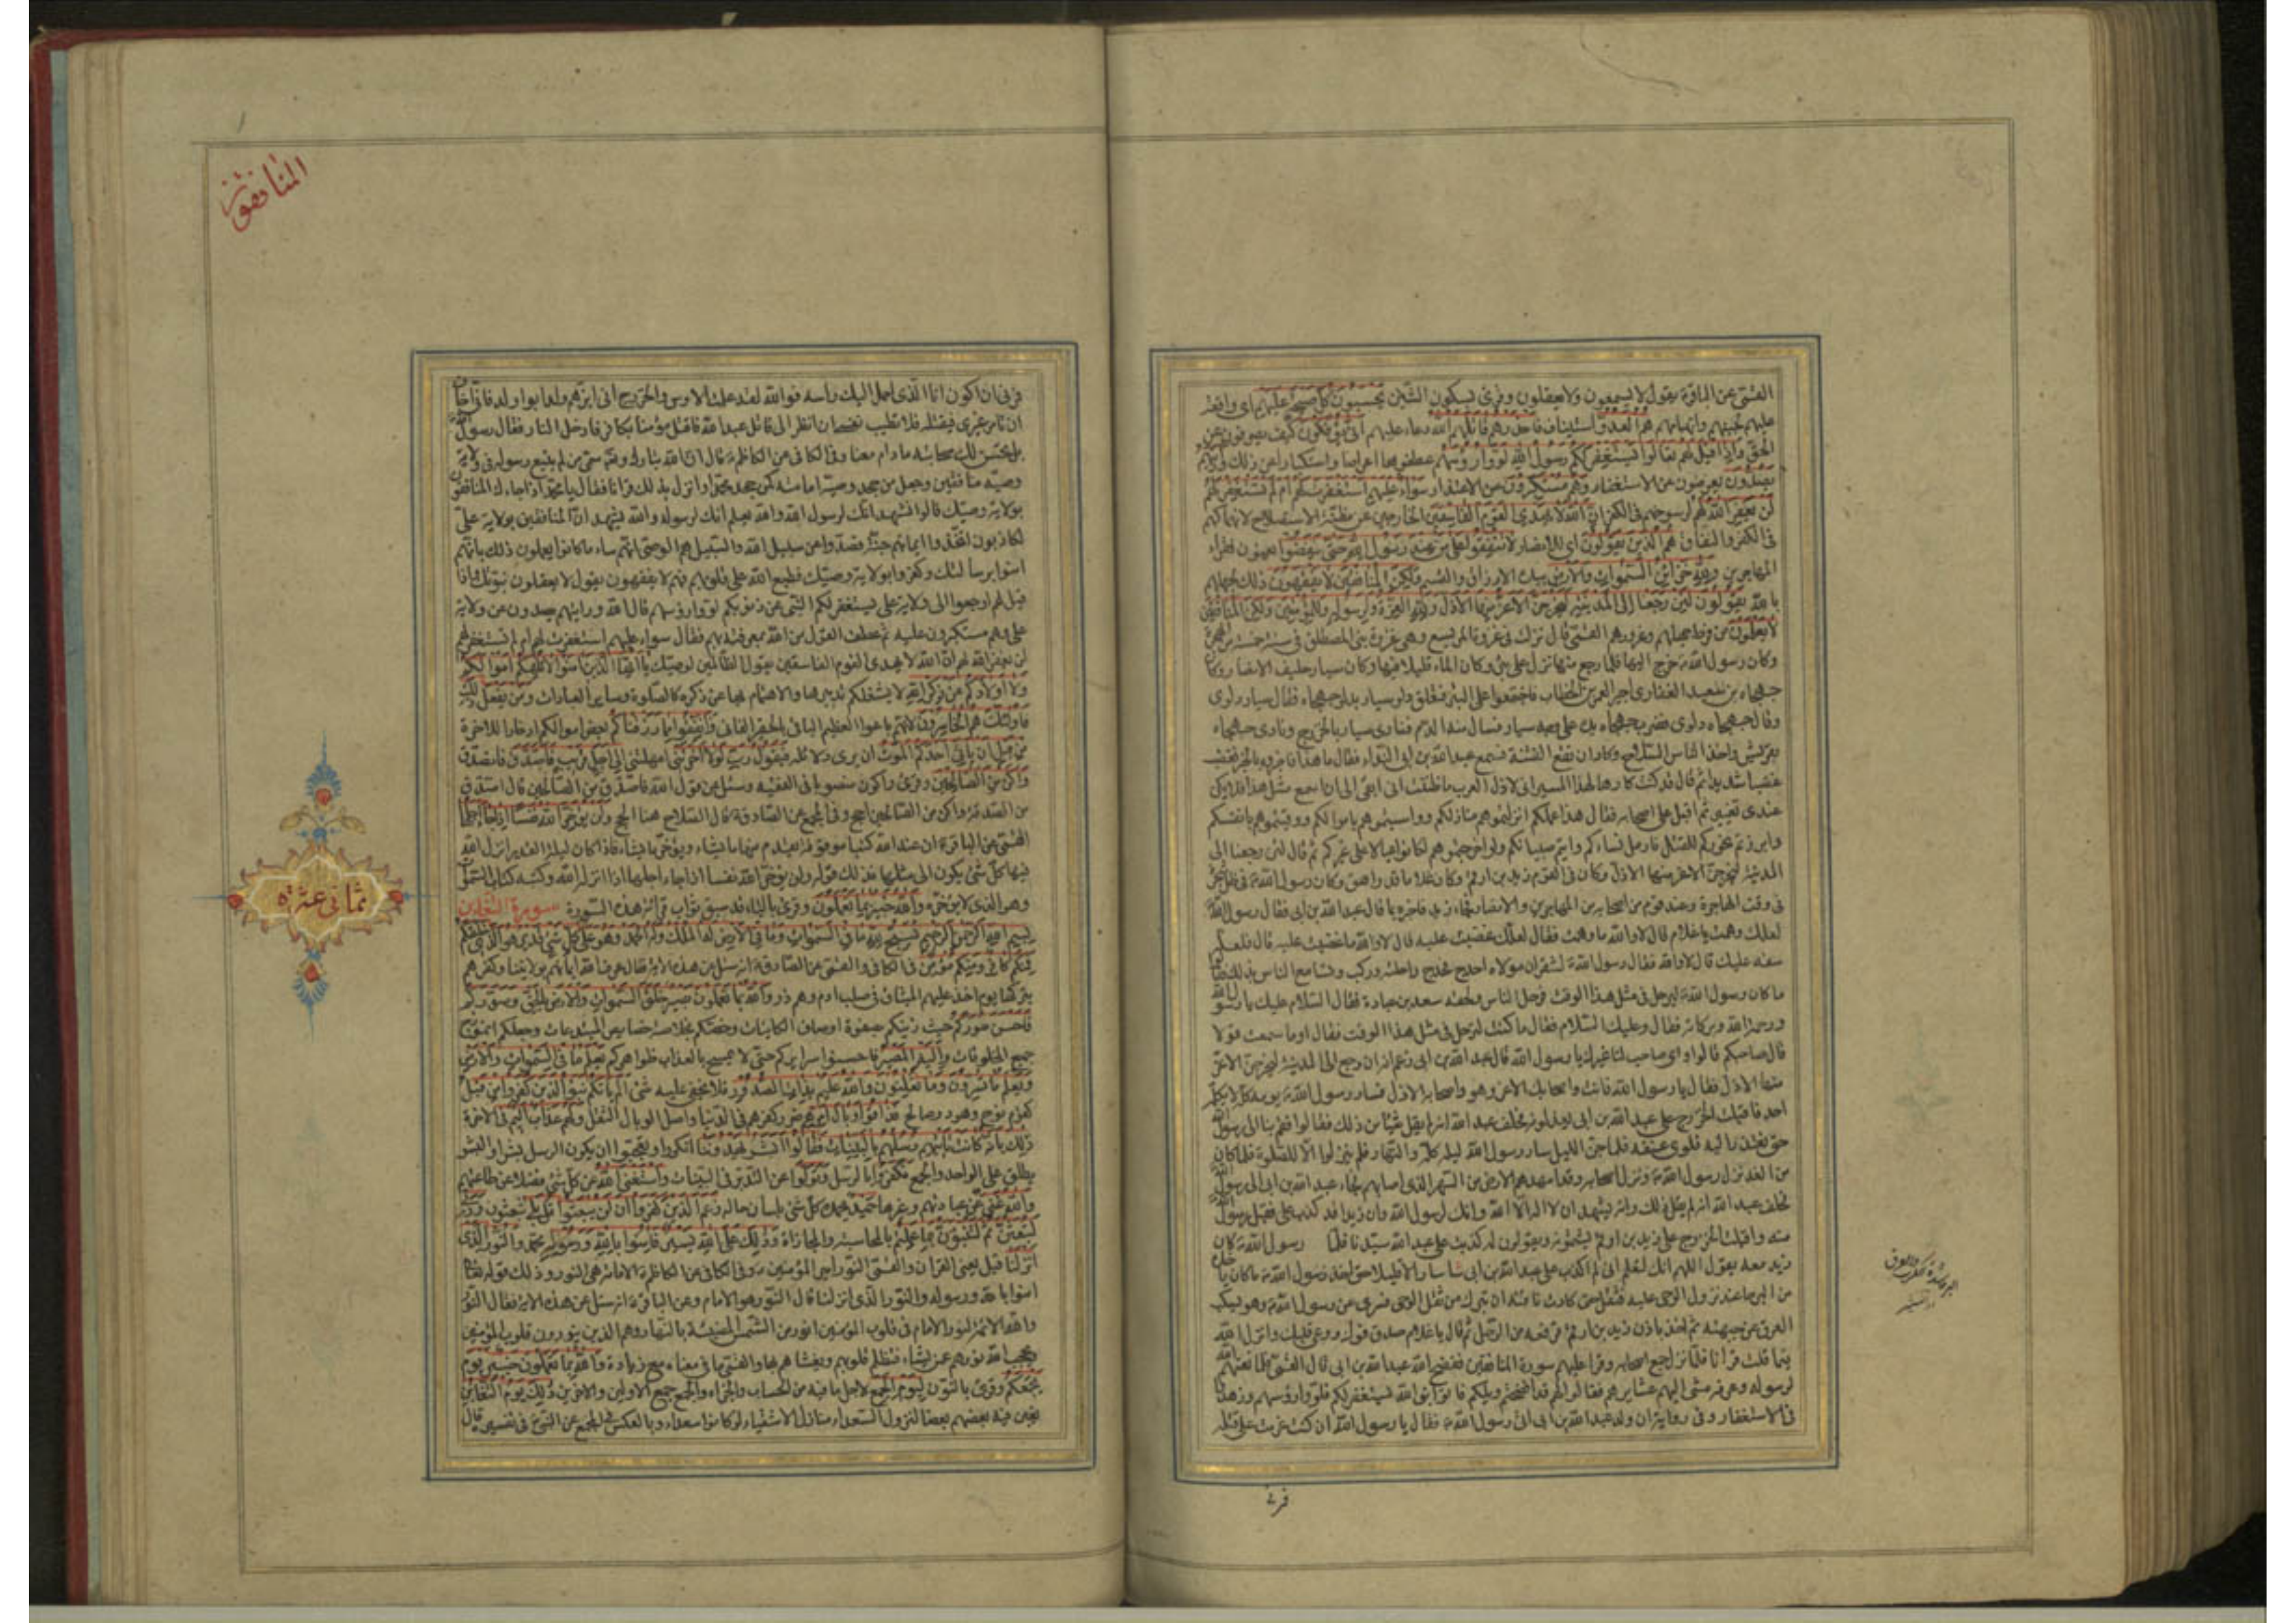 القمّي عن الباقر ع يقول لا يسمعون ولا يعقلون وقرئ بسكون الشين يحسبون كل صيحة عليهم اى واقعة
عليهم لجبنهم واتهامهم هم العدو استيناف فاحذرهم قاتلهم الله دعاء عليهم أنى يؤفكون كيف يصرفون عن
الحق وإذا قيل لهم تعالوا يستغفر لكم رسول الله لووا رؤسهم عطفوها اعراضا واستكبارا عن ذلك ورأيتهم
يصدون يعرضون عن الاستغفار وهم مستكبرون عن الاعتذار سواء عليهم استغفرت لهم ام لم تستغفر لهم
لن يغفر الله لهم لرسوخهم فى الكفر ان الله لا يهدى القوم الفاسقين الخارجين عن مظنة الاستصلاح لانهماكهم
فى الكفر والنفاق هم الذين يقولون اى للانصار لا تنفقوا على من عند رسول الله حتى ينفضوا يعنون فقراء
المهاجرين ولله خزائن السموات والارض بيده الارزاق والقسم ولكن المنافقين لا يفقهون ذلك لجهلهم
بالله يقولون لئن رجعنا إلى المدينة ليخرجن الاعز منها الاذل ولله العزة ولرسوله وللمؤمنين ولكن المنافقين
لا يعلمون من فرط جهلهم وغرورهم القمى قال نزلت فى غزوة المريسيع وهى غزوة بنى المصطلق فى سنة خمس من الهجرة
وكان رسول الله ص خرج اليها فلما رجع منها نزل على بئر وكان الماء قليلا فيها وكان سيار حليف الانصار وكان
جهجاه بن سعيد الغفارى اجيرا لعمر بن الخطاب فاجتمعوا على البئر فتعلق دلو سيار بدلو جهجاه فقال سيار دلوى
وقال جهجاه دلوى فضرب جهجاه يده على وجه سيار فسال منه الدم فنادى سيار بالخزرج ونادى جهجاه
بقريش واخذ الناس السلاح وكاد ان تقع الفتنة فسمع عبد الله بن ابى النداء فقال ما هذا فاخبروه بالخبر فغضب
غضبا شديدا ثم قال قد كنت كارها لهذا المسير انى لاذل العرب ما ظننت انى ابقى الى ان اسمع مثل هذا فلا يكن
عندى تغيير ثم اقبل على اصحابه فقال هذا عملكم انزلتموهم منازلكم وواسيتموهم باموالكم ووقيتموهم بانفسكم
وابرزتم نحوركم للقتل فارمل نساءكم وايتم صبيانكم ولو اخرجتموهم لكانوا عيالا على غيركم ثم قال لئن رجعنا الى
المدينة ليخرجن الاعز منها الاذل وكان فى القوم زيد بن ارقم وكان غلاما قد راهق وكان رسول الله ص فى ظل شجرة
فى وقت الهاجرة وعنده قوم من اصحابه من المهاجرين والانصار فجاء زيد فاخبره بما قال عبد الله بن ابى فقال رسول الله
لعلك وهمت يا غلام قال لا والله ما وهمت فقال لعلك غضبت عليه قال لا والله ما غضبت عليه قال فلعله
سفه عليك قال لا والله فقال رسول الله ص لشقران مولاه احدج فحدج راحلته وركب وتسامع الناس بذلك فقالوا
ما كان رسول الله ص ليرحل فى مثل هذا الوقت فرحل الناس ولحقه سعد بن عبادة فقال السلام عليك يا رسول الله
ورحمة الله وبركاته فقال وعليك السلام فقال ما كنت لترحل فى مثل هذا الوقت فقال اوما سمعت قولا
قال صاحبكم قالوا واى صاحب لنا غيرك يا رسول الله قال عبد الله بن ابى زعم انه ان رجع الى المدينة ليخرجن الاعز
منها الاذل فقال يا رسول الله فانت واصحابك الاعز وهو واصحابه الاذل فسار رسول الله ص يومه كله لا يكلمه
احد فاقبلت الخزرج على عبد الله بن ابى يعذلونه فحلف عبد الله انه لم يقل شيئا من ذلك فقالوا فقم بنا الى رسول الله
حتى نعتذر اليه فلوى عنقه فلما جن الليل سار رسول الله ليله كله والنهار فلم ينزلوا الا للصلوة فلما كان
من الغد نزل رسول الله ص ونزل اصحابه وقد امهدهم الارض من السهر الذى اصابهم فجاء عبد الله بن ابى الى رسول الله
فحلف عبد الله انه لم يقل ذلك وانه ليشهد ان لا اله الا الله وانك لرسول الله وان زيدا قد كذب على فقبل رسول الله
منه واقبلت الخزرج على زيد بن ارقم يشتمونه ويقولون له كذبت على عبد الله سيدنا فلما رسول الله ص كان
زيد معه يقول اللهم انك لتعلم انى لم اكذب على عبد الله بن ابى فما سار الا قليلا حتى اخذ رسول الله ص ما كان يأخذه
من البرحاء عند نزول الوحى عليه فثقل حتى كادت ناقته ان تبرك من ثقل الوحى فسرى عن رسول الله ص وهو يسكب
العرق عن جبهته ثم اخذ باذن زيد بن ارقم فرفعه من الرحل ثم قال يا غلام صدق فوك ووعى قلبك وانزل الله
فيما قلت قرآنا فلما نزل جمع اصحابه وقرأ عليهم سورة المنافقين ففضح الله عبد الله بن ابى قال القمى فلما نعتهم الله
لرسوله وعرفه مشى اليهم عشايرهم فقالوا لهم قد افتضحتم ويلكم فاتوا نبى الله يستغفر لكم فلووا رؤسهم وزهدوا
فى الاستغفار وفى رواية ان ولد عبد الله بن ابى اتى رسول الله ص فقال يا رسول الله ان كنت عزمت على قتله
فرنى
المنافقون
فرنى ان اكون انا الذى احمل اليك رأسه فوالله لقد علمت الاوس والخزرج انى ابرهم ولدا بوالد فانى اخاف
ان تامر غيرى فيقتله فلا تطيب نفسى ان انظر الى قاتل عبد الله فاقتل مؤمنا بكافر فادخل النار فقال رسول الله
بل نحسن لك صحابته ما دام معنا وفى الكافى عن الكاظم ع قال ان الله تبارك وتعالى سمى من لم يتبع رسوله فى ولاية
وصيه منافقين وجعل من جحد وصيه امامته كمن جحد محمدا وانزل بذلك قرآنا فقال يا محمد اذا جاءك المنافقون
بولاية وصيك قالوا نشهد انك لرسول الله والله يعلم انك لرسوله والله يشهد ان المنافقين بولاية على
لكاذبون اتخذوا ايمانهم جنة فصدوا عن سبيل الله والسبيل هو الوصى انهم ساء ما كانوا يعملون ذلك بانهم
امنوا برسالتك وكفروا بولاية وصيك فطبع الله على قلوبهم فهم لا يفقهون يقول لا يعقلون نبوتك واذا
قيل لهم ارجعوا الى ولاية على يستغفر لكم النبى من ذنوبكم لووا رؤسهم قال الله ورايتهم يصدون عن ولاية
على وهم مستكبرون عليه ثم عطف القول من الله بمعرفته بهم فقال سواء عليهم استغفرت لهم ام لم تستغفر لهم
لن يغفر الله لهم ان الله لا يهدى القوم الفاسقين يقول الظالمين لوصيك يا ايها الذين امنوا لا تلهكم اموالكم
ولا اولادكم عن ذكر الله لا يشغلكم تدبيرها والاهتمام بها عن ذكره كالصلوة وساير العبادات ومن يفعل ذلك
فاولئك هم الخاسرون لانهم باعوا العظيم الباقى بالحقير الفانى وانفقوا مما رزقناكم بعض اموالكم ادخارا للاخرة
من قبل ان ياتى احدكم الموت ان يرى دلائله فيقول رب لولا اخرتنى امهلتنى الى اجل قريب فاصدق فاتصدق
واكن من الصالحين وقرئ واكون منصوبا فى الفقيه وسئل عن قول الله فاصدق واكن من الصالحين قال اصدق
من الصدقة واكن من الصالحين احج وفى المجمع عن الصادق ع قال الصلاح هنا الحج ولن يؤخر الله نفسا اذا جاء اجلها
القمى عن الباقر ع ان عند الله كتبا موقوفة يقدم منها ما يشاء ويؤخر ما يشاء فاذا كان ليلة القدر انزل الله
فيها كل شئ يكون الى مثلها فذلك قوله ولن يؤخر الله نفسا اذا جاء اجلها اذا انزله الله وكتبه كتاب السموات
وهو الذى لا يؤخره والله خبير بما تعملون وقرئ بالياء قد سبق ثواب قرائة هذه السورة سورة التغابن
بسم الله الرحمن الرحيم يسبح لله ما فى السموات وما فى الارض له الملك وله الحمد وهو على كل شئ قدير هو الذى خلقكم
فمنكم كافر ومنكم مؤمن فى الكافى والقمى عن الصادق ع انه سئل عن هذه الاية فقال عرف الله ايمانهم بولايتنا وكفرهم
بتركها يوم اخذ عليهم الميثاق فى صلب ادم وهم ذر والله بما تعملون بصير خلق السموات والارض بالحق وصوركم
فاحسن صوركم حيث زينكم بصفوة اوصاف الكاينات وخصكم بخلاصة خصايص المبدعات وجعلكم انموذج
جميع المخلوقات واليه المصير فاحسنوا سرايركم حتى لا يمسخ بالعذاب ظواهركم يعلم ما فى السموات والارض
ويعلم ما تسرون وما تعلنون والله عليم بذات الصدور فلا يخفى عليه شئ الم ياتكم نبؤ الذين كفروا من قبل
كقوم نوح وهود وصالح فذاقوا وبال امرهم ضرر كفرهم فى الدنيا واصل الوبال الثقل ولهم عذاب اليم فى الاخرة
ذلك بانه كانت تاتيهم رسلهم بالبينات فقالوا ابشر يهدوننا انكروا وتعجبوا ان يكون الرسل بشرا والبشر
يطلق على الواحد والجمع فكفروا بالرسل وتولوا عن التدبر فى البينات واستغنى الله عن كل شئ فضلا عن طاعتهم
والله غنى عن عبادتهم وغيرها حميد يحمده كل شئ بلسان حاله زعم الذين كفروا ان لن يبعثوا قل بلى تبعثون وربى
لتبعثن ثم لتنبؤن بما عملتم بالمحاسبة والمجازاة وذلك على الله يسير فامنوا بالله ورسوله محمد والنور الذى
انزلنا قيل يعنى القران والقمى النور امير المؤمنين ع وفى الكافى عن الكاظم ع الامامة هى النور وذلك قوله تعالى
امنوا بالله ورسوله والنور الذى انزلنا قال النور هو الامام وعن الباقر ع انه سئل عن هذه الاية فقال النور
والله الائمة لنور الامام فى قلوب المؤمنين انور من الشمس المضيئة بالنهار وهم الذين ينورون قلوب المؤمنين
ويحجب الله نورهم عمن يشاء فتظلم قلوبهم ويغشاهم بها والقمى ما فى معناه مع زيادة والله بما تعملون خبير يوم
يجمعكم وقرئ بالنون ليوم الجمع لاجل ما فيه من الحساب والجزاء والجمع جمع الاولين والاخرين ذلك يوم التغابن
يغبن فيه بعضهم بعضا لنزول السعداء منازل الاشقياء لو كانوا سعداء وبالعكس فى المجمع عن النبى ص فى تفسيره قال
ثمانى عشرة